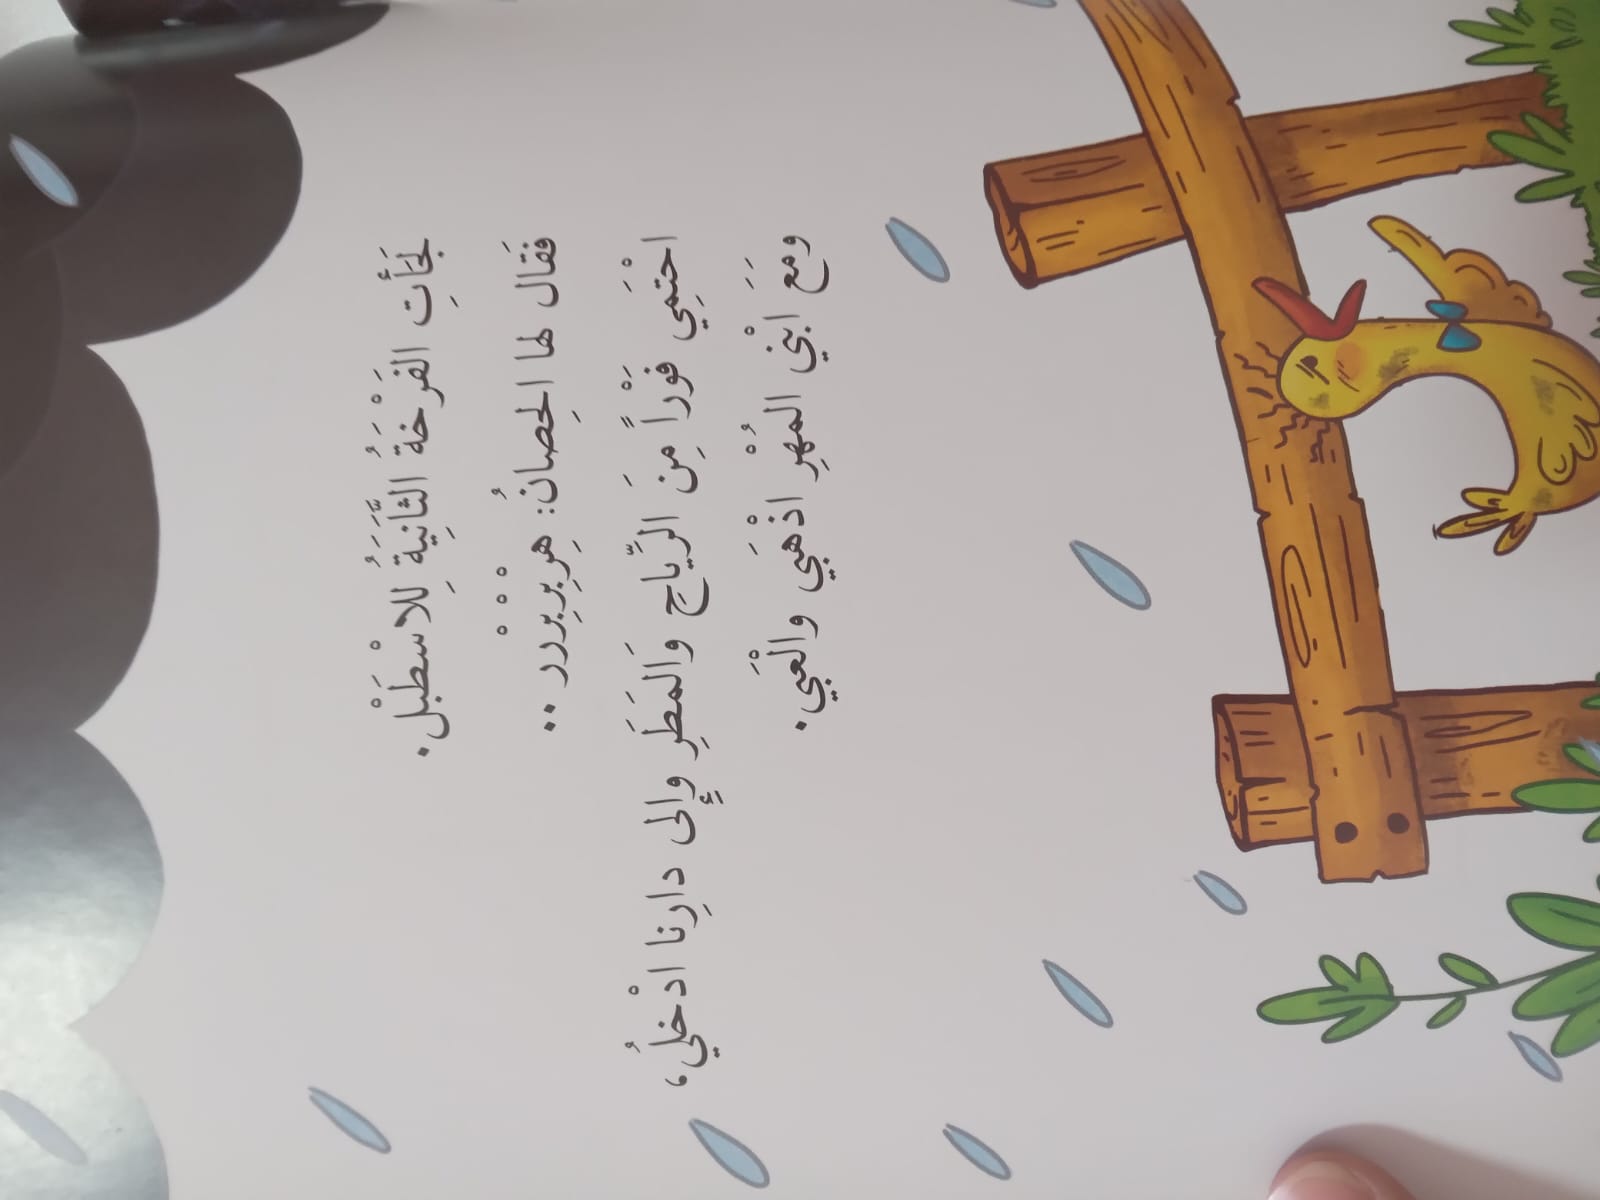 لَجَأَتِ الفَرْخَةُ الثَّانِيَةُ لِلاسْطَبْلِ.
فَقَال لها الحِصانُ: هِرِبرِبرِدر ..
احْتَمِي فَوْراً مِنَ الرِّيَاحِ وَالمَطَرِ وإِلى دارِنا ادْخُلِي،
ومَعَ ابْنِي المُهْرِ اذْهَبِي والْعَبِي.